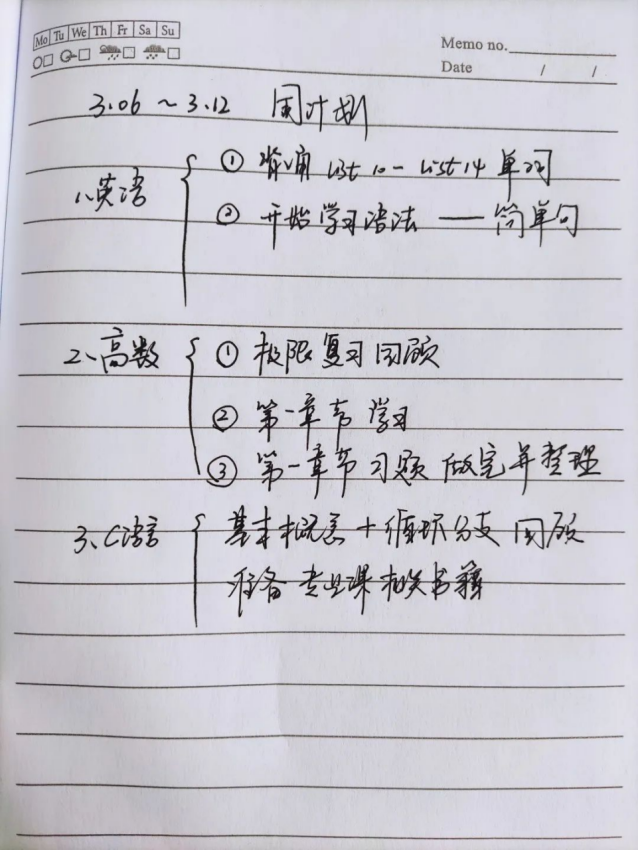 Mo Tu We Th Fr Sa Su
Memo no.
Date / /
3.06 ~ 3.12 周计划
1、英语
① 背诵 list 10 - list 14 单词
② 开始学习语法 —— 简单句
2、高数
① 极限复习回顾
② 第一章节学习
③ 第一章节习题做完并整理
3、C语言
基本概念 + 循环分支 回顾
准备专业课相关书籍